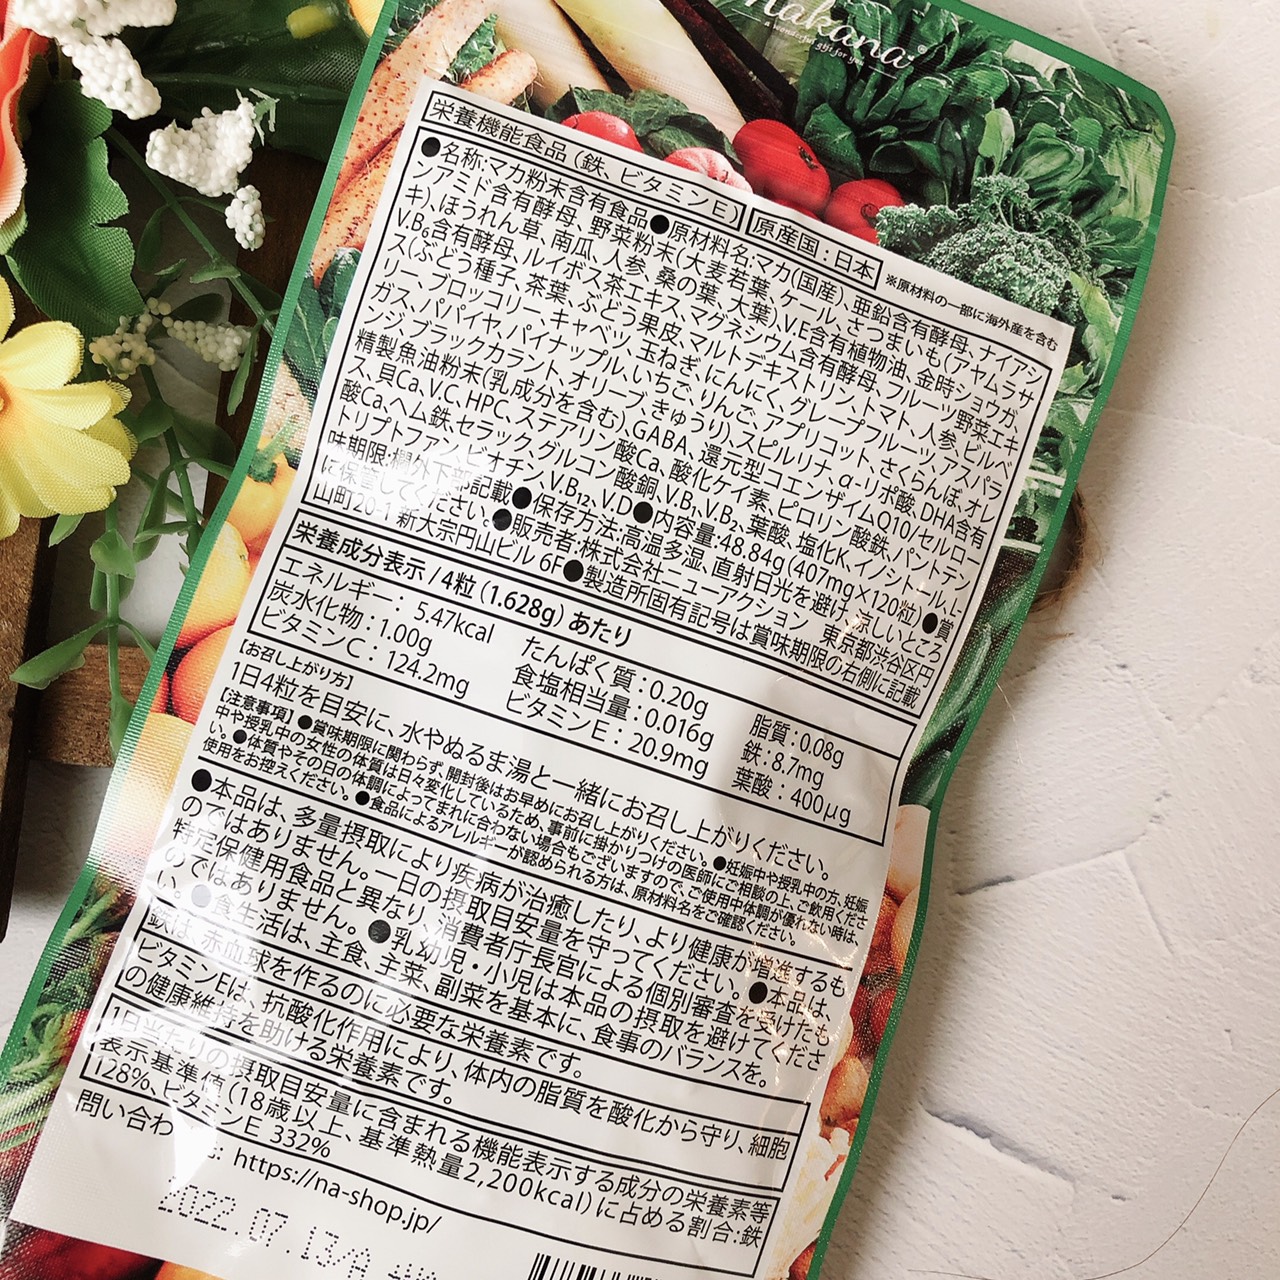 nakana
a wonderful gift for you
栄養機能食品(鉄、ビタミンE)
原産国：日本
※原材料の一部に海外産を含む
●名称:マカ粉末含有食品●原材料名:マカ(国産)、亜鉛含有酵母、ナイアシ
ンアミド含有酵母、野菜粉末(大麦若葉、ケール、さつまいも(アヤムラサ
キ)、ほうれん草、南瓜、人参、桑の葉、大葉)、V.E含有植物油、金時ショウガ、
V.B₆含有酵母、ルイボス茶エキス、マグネシウム含有酵母、フルーツ野菜エキ
ス(ぶどう種子、茶葉、ぶどう果皮、マルトデキストリン、トマト、人参、ビルベ
リー、ブロッコリー、キャベツ、玉ねぎ、にんにく、グレープフルーツ、アスパラ
ガス、パパイヤ、パイナップル、いちご、りんご、アプリコット、さくらんぼ、オレ
ンジ、ブラックカラント、オリーブ、きゅうり)、スピルリナ、α-リポ酸、DHA含有
精製魚油粉末(乳成分を含む)、GABA、還元型コエンザイムQ10/セルロー
ス、貝Ca、V.C、HPC、ステアリン酸Ca、酸化ケイ素、ピロリン酸鉄、パントテン
酸Ca、ヘム鉄、セラック、グルコン酸銅、V.B₁、V.B₂、葉酸、塩化K、イノシトール、L-
トリプトファン、ビオチン、V.B₁₂、V.D●内容量:48.84g(407mg×120粒)●賞
味期限:欄外下部記載●保存方法:高温多湿、直射日光を避け、涼しいところ
に保管してください。●販売者:株式会社ニューアクション 東京都渋谷区円
山町20-1 新大宗円山ビル 6F●製造所固有記号は賞味期限の右側に記載
栄養成分表示 / 4粒 (1.628g) あたり
エネルギー：5.47kcal たんぱく質：0.20g 脂質：0.08g
炭水化物：1.00g 食塩相当量：0.016g 鉄：8.7mg
ビタミンC：124.2mg ビタミンE：20.9mg 葉酸：400μg
【お召し上がり方】
1日4粒を目安に、水やぬるま湯と一緒にお召し上がりください。
【注意事項】●賞味期限に関わらず、開封後はお早めにお召し上がりください。●妊娠中や授乳中の方、妊娠
中や授乳中の女性の体質は日々変化しているため、事前に掛かりつけの医師にご相談の上、ご飲用くださ
い。●体質やその日の体調によってまれに合わない場合もございますので、ご使用中体調が優れない時は、
使用をお控えください。●食品によるアレルギーが認められる方は、原材料名をご確認ください。
●本品は、多量摂取により疾病が治癒したり、より健康が増進するも
のではありません。一日の摂取目安量を守ってください。●本品は、
特定保健用食品と異なり、消費者庁長官による個別審査を受けたも
のではありません。●乳幼児・小児は本品の摂取を避けてくださ
い。●食生活は、主食、主菜、副菜を基本に、食事のバランスを。
鉄は、赤血球を作るのに必要な栄養素です。
ビタミンEは、抗酸化作用により、体内の脂質を酸化から守り、細胞
の健康維持を助ける栄養素です。
1日当たりの摂取目安量に含まれる機能表示する成分の栄養素等
表示基準値(18歳以上、基準熱量2,200kcal)に占める割合:鉄
128%、ビタミンE 332%
問い合わ
: https://na-shop.jp/
2022.07.13/A